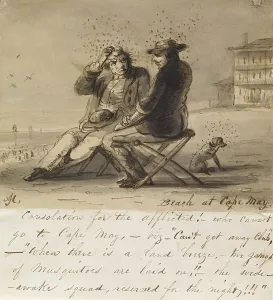 Beach at Cape May.
Consolation for the afflicted:- who cannot
go to Cape May, - viz - "Can't get away Club,
- "When there is a land breeze, - two
of Musquitoes are laid on," - the wide-
-awake squad, reserved for the night,!!!"